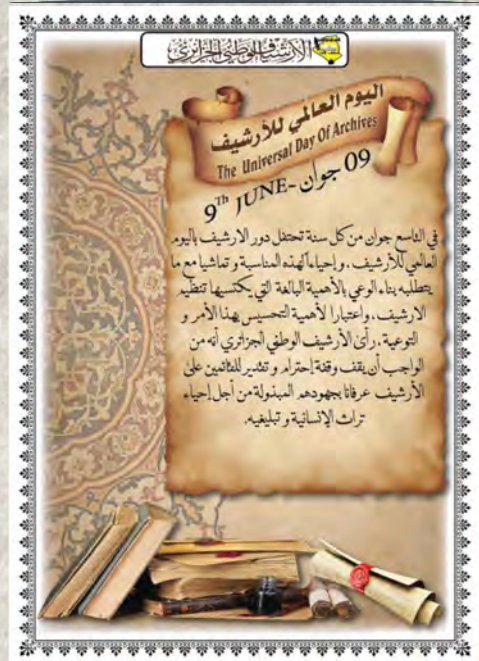 الأرشيف الوطني الجزائري
اليوم العالمي للأرشيف
The Universal Day Of Archives
09 جوان - 9Th JUNE
في التاسع جوان من كل سنة تحتفل دور الارشيف باليوم
العالمي للأرشيف، وإحياء لهذه المناسبة و تماشيا مع ما
يتطلبه بناء الوعي بالأهمية البالغة التي يكتسيها تنظيم
الارشيف، واعتبارا لأهمية التحسيس بهذا الأمر و
التوعية، رأى الأرشيف الوطني الجزائري أنه من
الواجب أن يقف وقفة إحترام و تقدير للقائمين على
الأرشيف عرفانا بجهودهم المبذولة من أجل إحياء
تراث الإنسانية و تبليغيه.